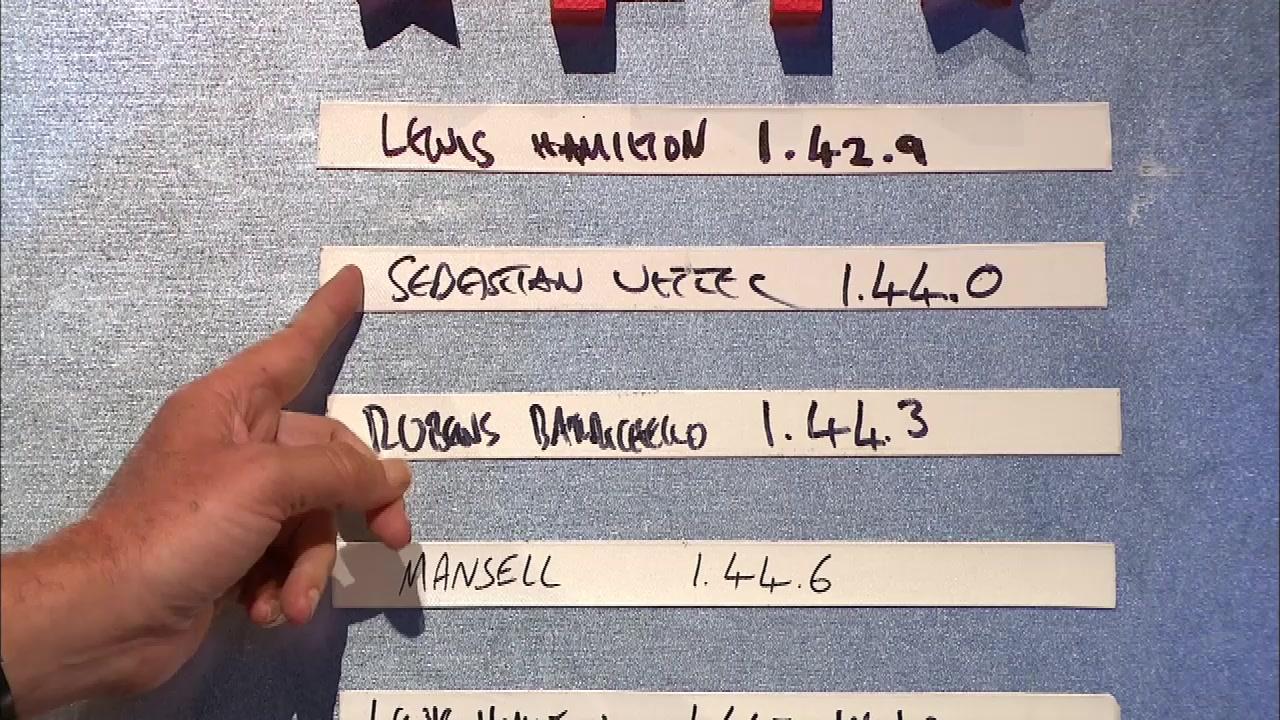 LEWIS HAMILTON 1.42.9
SEBASTIAN VETTEL 1.44.0
RUBENS BARRICHELLO 1.44.3
MANSELL 1.44.6
LEWIS